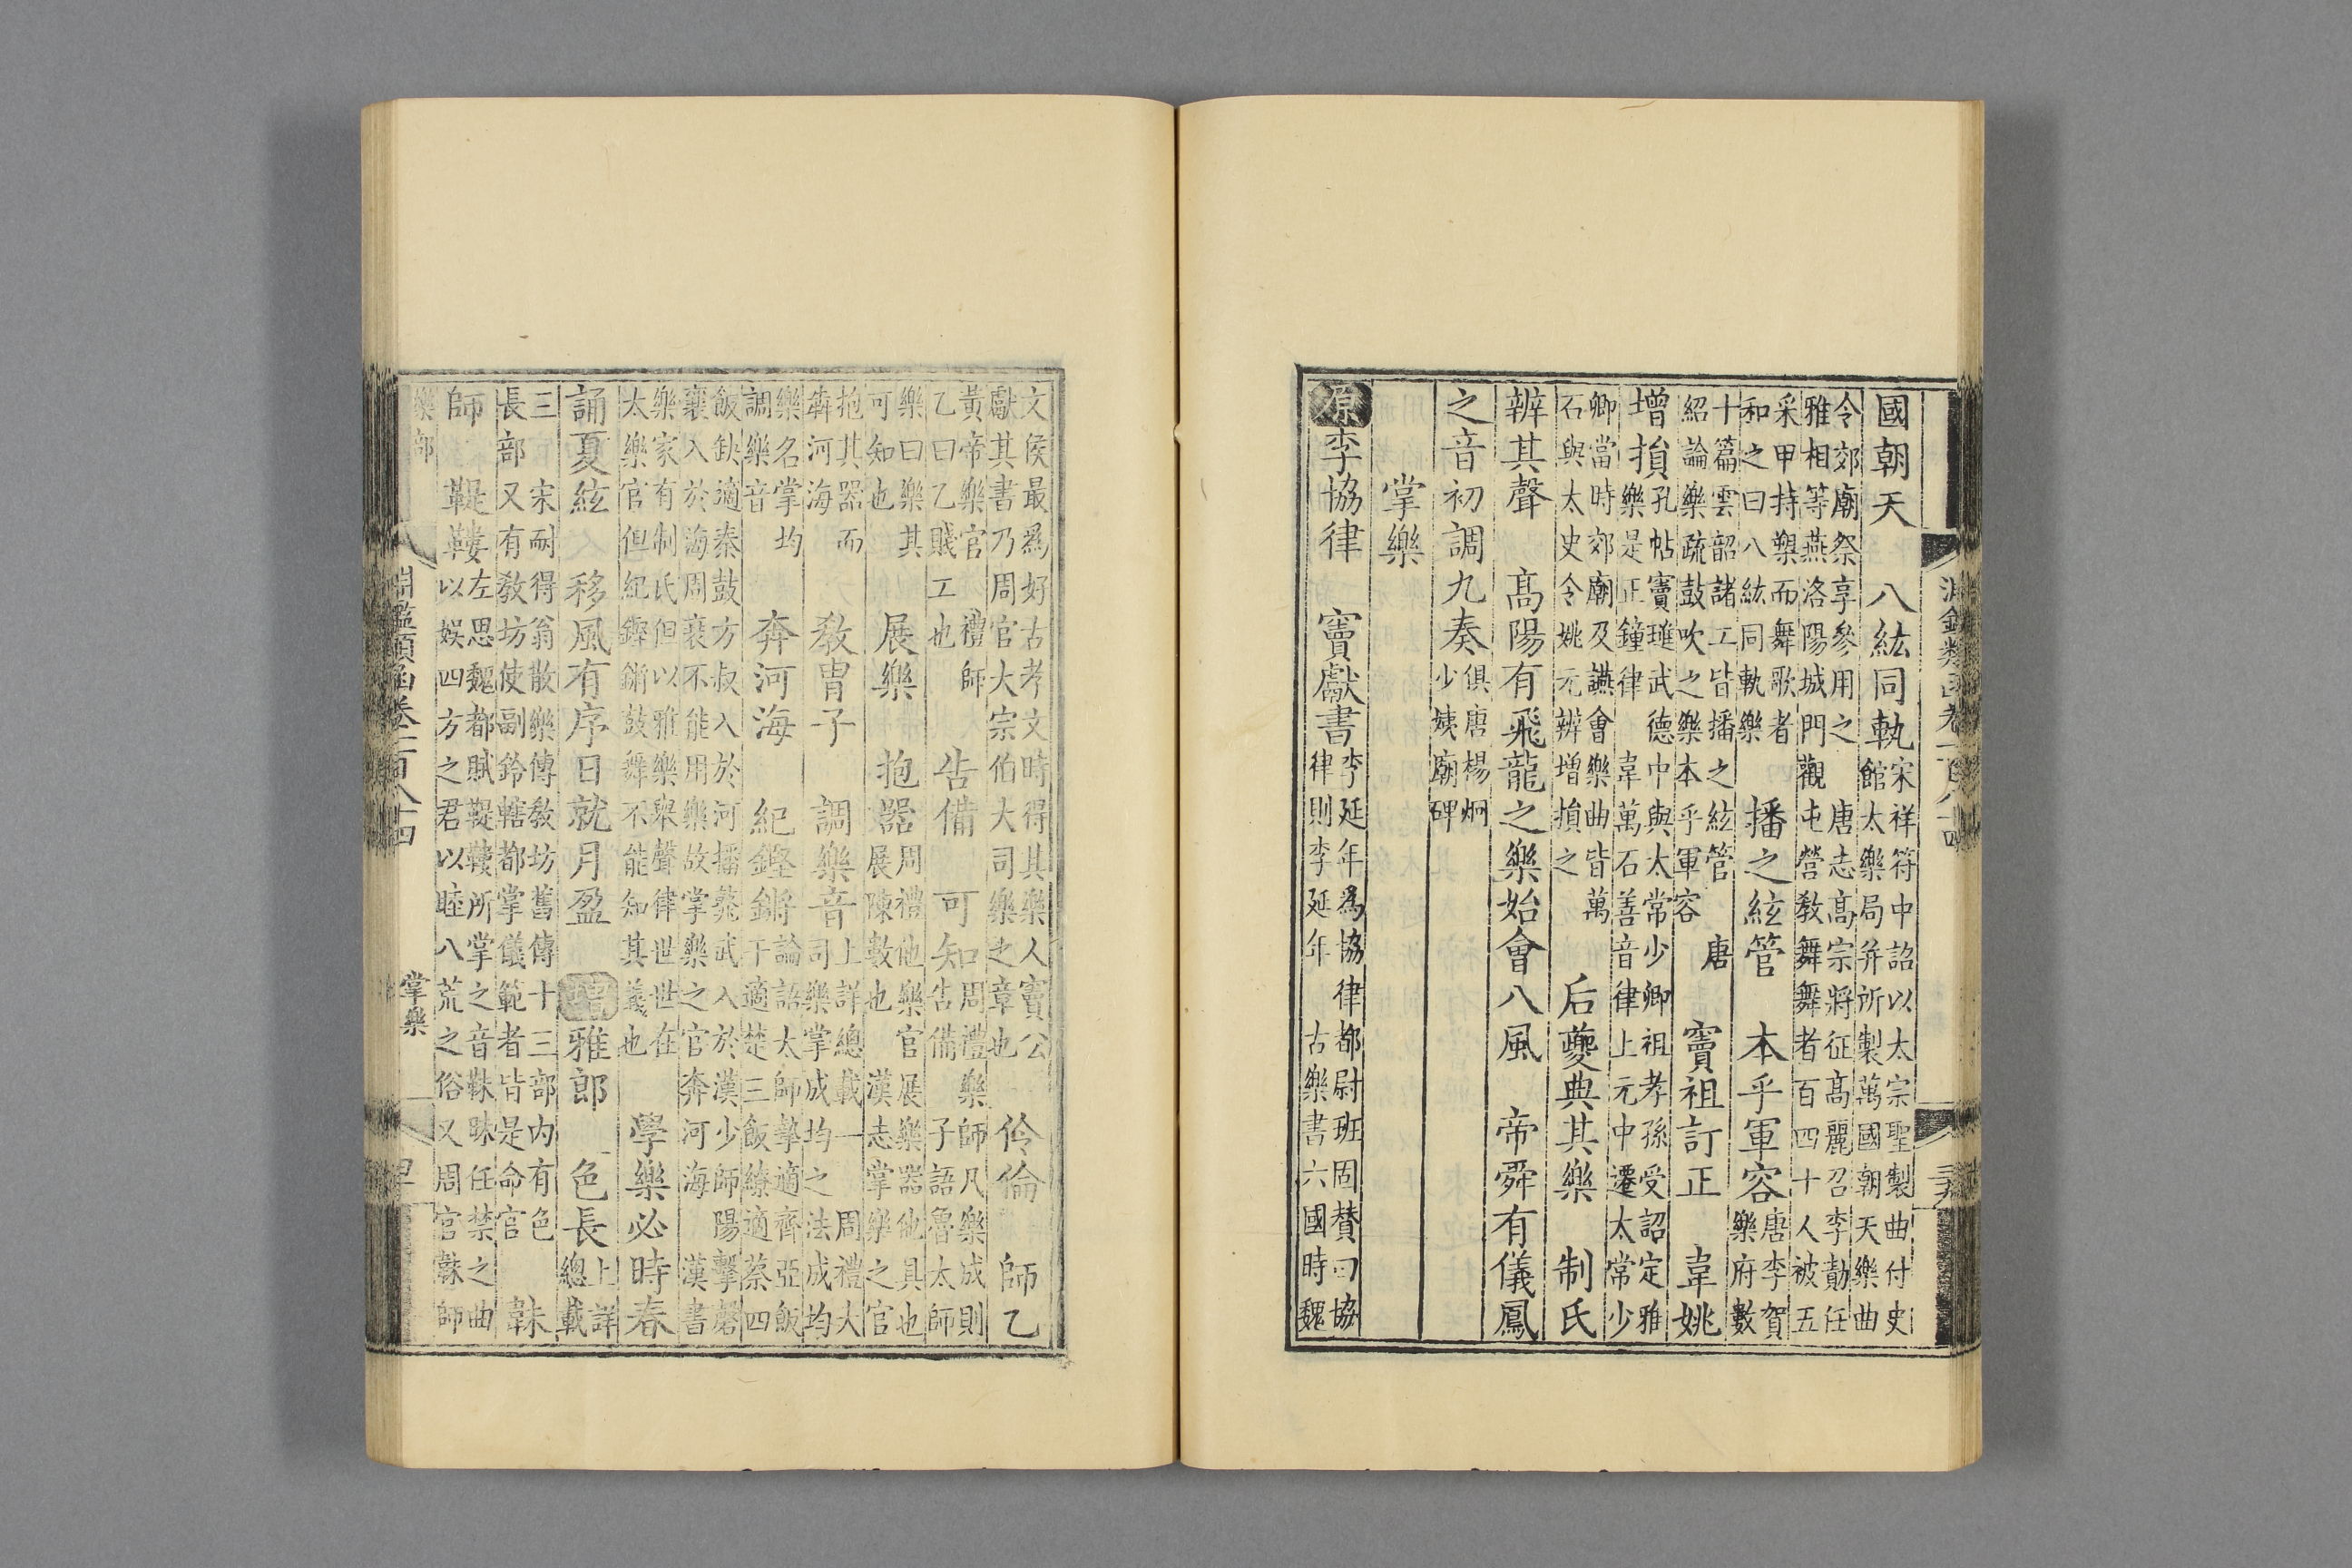 國朝天　八紘同軌宋祥符中詔以太宗聖製曲付史
館太樂局并所製萬國朝天樂曲
令郊廟祭享參用之　唐志高宗將征高麗召李勣任
雅相等燕洛陽城門觀屯營教舞舞者百四十人被五
采甲持槊而舞歌者
和之曰八紘同軌樂　播之絃管　本乎軍容唐李賀
樂府數
十篇雲韶諸工皆播之絃管　唐
紹論樂疏鼓吹之樂本乎軍容　竇祖訂正　韋姚
增損孔帖竇璡武德中與太常少卿祖孝孫受詔定雅
樂是正鐘律　韋萬石善音律上元中遷太常少
卿當時郊廟及讌會樂曲皆萬
石與太史令姚元辨增損之　后夔典其樂　制氏
辨其聲　高陽有飛龍之樂始會八風　帝舜有儀鳳
之音初調九奏俱唐楊炯
少姨廟碑
掌樂
原李協律　竇獻書李延年為協律都尉班固贊曰協
律則李延年　古樂書六國時魏
文侯最為好古孝文時得其樂人竇公
獻其書乃周官大宗伯大司樂之章也　伶倫　師乙
黃帝樂官　禮師
乙曰乙賤工也　告備　可知周禮樂師凡樂成則
告備　子語魯太師
樂曰樂其
可知也　展樂　抱器周禮他樂官展樂器他具也
展陳數也　漢志掌樂之官
抱其器而
犇河海　教胄子　調樂音上詳總載一　周禮大
司樂掌成均之法成均
樂名掌均
調樂音　奔河海　紀鏗鏘論語大師摯適齊亞飯
干適楚三飯繚適蔡四
飯缺適秦鼓方叔入於河播鼗武入於漢少師陽擊磬
襄入於海周衰不能用樂故掌樂之官奔河海　漢書
樂家有制氏但以雅樂聲律世世在
太樂官但紀鏗鏘鼓舞不能知其義也　學樂必時春
誦夏絃　移風有序日就月盈　增雅郎　色長上詳
總載
三　宋耐得翁散樂傳教坊舊傳十三部內有色
長部又有教坊使副鈐轄都掌儀範者皆是命官　韎
師　鞮鞻左思魏都賦鞮鞻所掌之音韎昧任禁之曲
以娛四方之君以睦八荒之俗又周官韎師
樂部
淵鑑類函卷一百八十四
掌樂